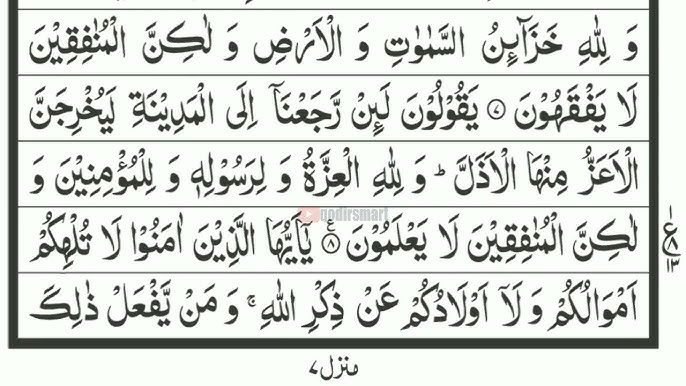 وَ لِلّٰهِ خَزَآئِنُ السَّمٰوٰتِ وَ الْاَرْضِ وَ لٰكِنَّ الْمُنٰفِقِيْنَ
لَا يَفْقَهُوْنَ ۝۷ يَقُوْلُوْنَ لَئِنْ رَّجَعْنَاۤ اِلَى الْمَدِيْنَةِ لَيُخْرِجَنَّ
الْاَعَزُّ مِنْهَا الْاَذَلَّ ؕ وَ لِلّٰهِ الْعِزَّةُ وَ لِرَسُوْلِهٖ وَ لِلْمُؤْمِنِيْنَ وَ
qodirsmart
لٰكِنَّ الْمُنٰفِقِيْنَ لَا يَعْلَمُوْنَ ۝۸ يٰۤاَيُّهَا الَّذِيْنَ اٰمَنُوْا لَا تُلْهِكُمْ
ع ۸ ۱۳
اَمْوَالُكُمْ وَ لَاۤ اَوْلَادُكُمْ عَنْ ذِكْرِ اللّٰهِ ۚ وَ مَنْ يَّفْعَلْ ذٰلِكَ
منزل ۷